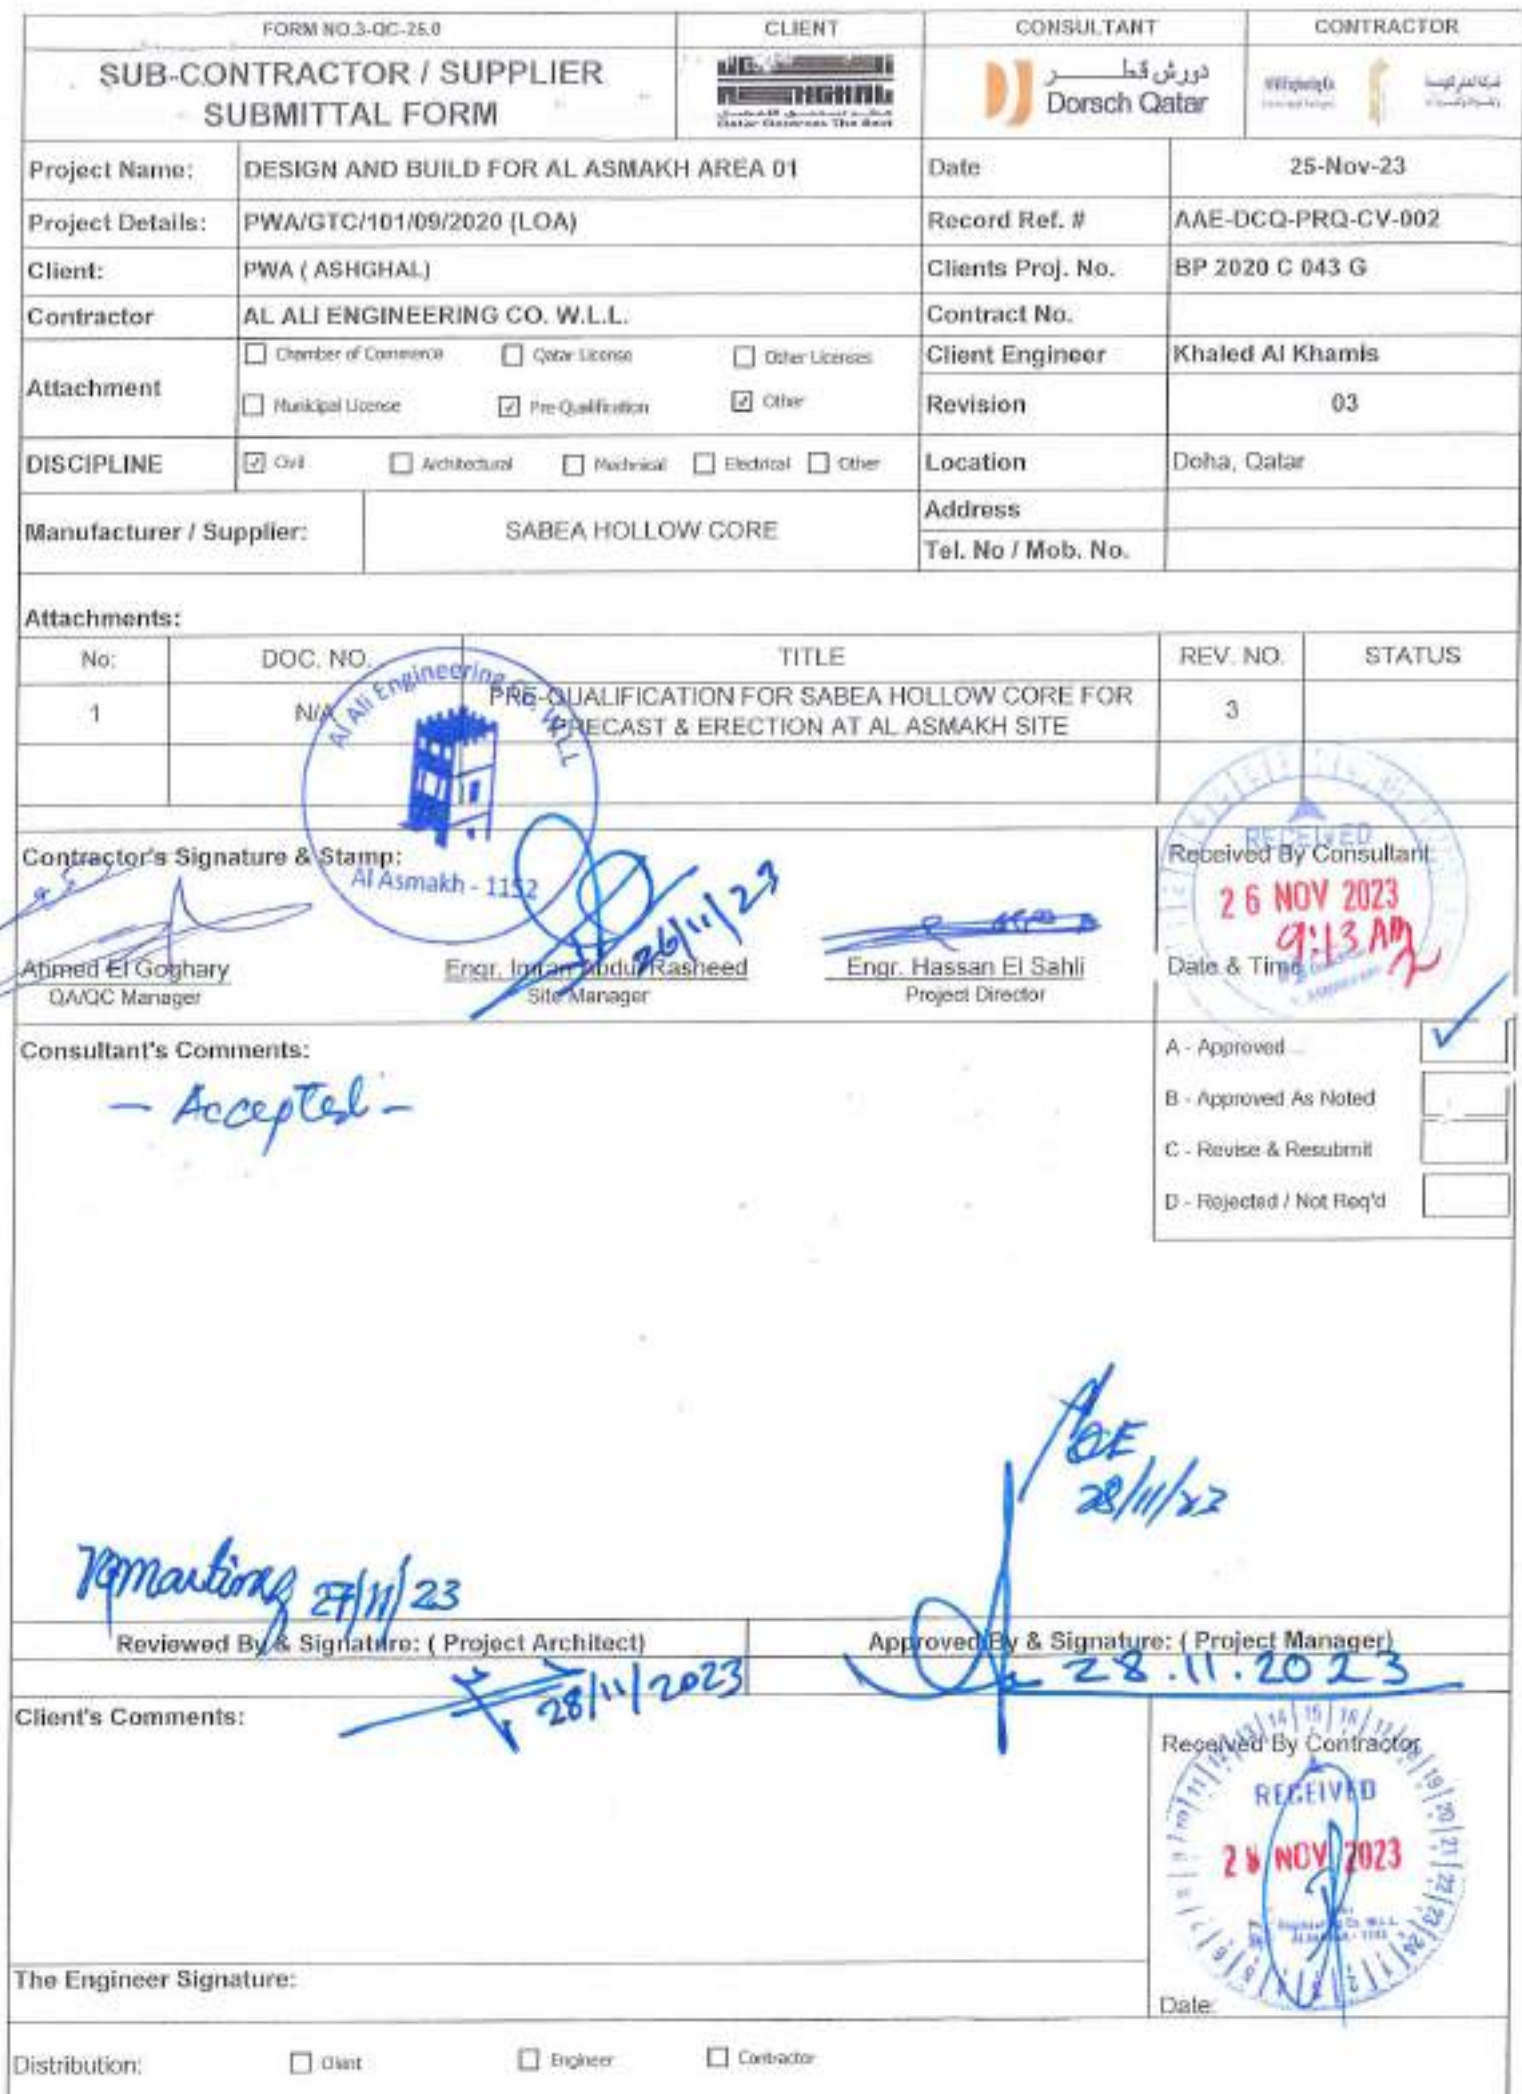 FORM NO.3-QC-25.0
CLIENT
CONSULTANT
CONTRACTOR
SUB-CONTRACTOR / SUPPLIER
SUBMITTAL FORM
ASHGHAL
Qatar Deserves The Best
دورش قطر
Dorsch Qatar
Project Name: DESIGN AND BUILD FOR AL ASMAKH AREA 01 Date 25-Nov-23
Project Details: PWA/GTC/101/09/2020 (LOA) Record Ref. # AAE-DCQ-PRQ-CV-002
Client: PWA ( ASHGHAL) Clients Proj. No. BP 2020 C 043 G
Contractor AL ALI ENGINEERING CO. W.L.L. Contract No.
Attachment
Chamber of Commerce Qatar License Other Licenses Client Engineer Khaled Al Khamis
Municipal License Pre-Qualification Other Revision 03
DISCIPLINE Civil Architectural Mechnical Electrical Other Location Doha, Qatar
Manufacturer / Supplier: SABEA HOLLOW CORE
Address
Tel. No / Mob. No.
Attachments:
No: DOC. NO. TITLE REV. NO. STATUS
1 N/A PRE-QUALIFICATION FOR SABEA HOLLOW CORE FOR 3
PRECAST & ERECTION AT AL ASMAKH SITE
Al Ali Engineering Co. W.L.L
Al Asmakh - 1152
Contractor's Signature & Stamp:
26/11/23
Ahmed El Goghary Engr. Imran Abdul Rasheed Engr. Hassan El Sahli
QA/QC Manager Site Manager Project Director
RECEIVED
Received By Consultant
26 NOV 2023
9:13 AM
Date & Time
Consultant's Comments:
- Accepted -
A - Approved
B - Approved As Noted
C - Revise & Resubmit
D - Rejected / Not Req'd
28/11/23
27/11/23
Reviewed By & Signature: ( Project Architect) Approved By & Signature: ( Project Manager)
28/11/2023
28.11.2023
Client's Comments:
Received By Contractor
RECEIVED
28 NOV 2023
The Engineer Signature:
Date:
Distribution: Client Engineer Contractor